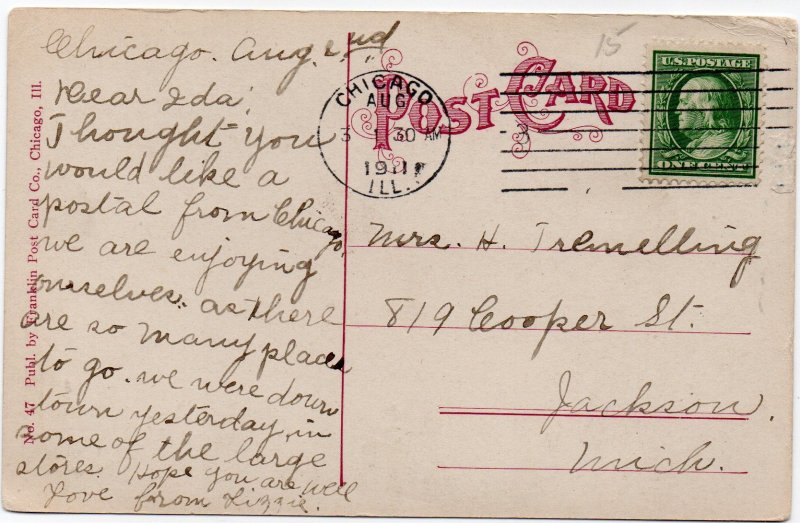 Chicago. Aug. 2nd
Dear Ida,
Thought you
would like a
postal from Chicago,
we are enjoying
ourselves. as there
are so many places
to go. we were down
town yesterday, in
some of the large
stores. Hope you are well
Love from Lizzie.
No. 47 Publ. by Franklin Post Card Co., Chicago, Ill.
POST CARD
15
CHICAGO
AUG
3
30 AM
1911
ILL.
3
U.S. POSTAGE
ONE CENT
Mrs. H. Tremelling
819 Cooper St.
Jackson,
Mich.